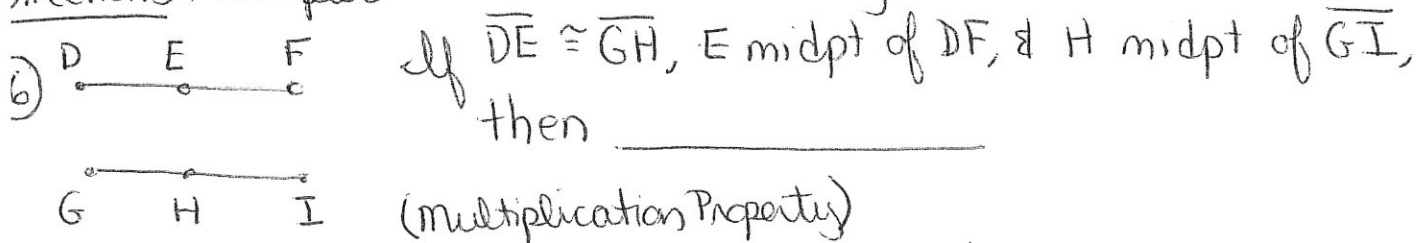 6) D E F If DE ≅ GH, E midpt of DF, & H midpt of GI,
then ____________
G H I (Multiplication Property)